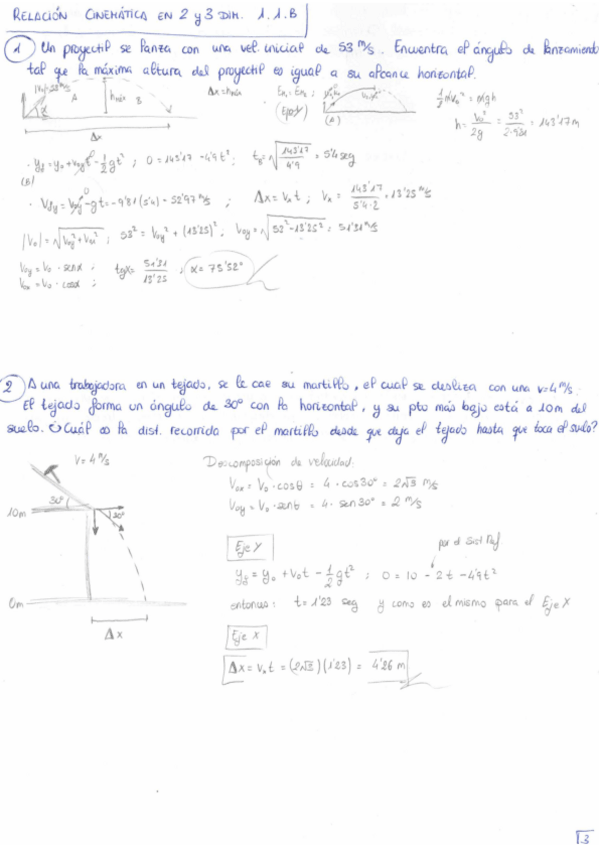 RELACIÓN CINEMÁTICA EN 2 y 3 DIM. 1.1.B
1 Un proyectil se lanza con una vel. inicial de 53 m/s. Encuentra el ángulo de lanzamiento
tal que la máxima altura del proyectil es igual a su alcance horizontal.
|V₀|=53 m/s A hmáx B
α
Δx
Δx = hmáx
Em₁ = Em₂ ;
(A)
½ m V₀² = mgh
h = V₀²/2g = 53²/2·9'81 = 143'17 m
· yf = y₀ + v₀y t - ½ g t² ; 0 = 143'17 - 4'9 t² ; tB = √(143'17/4'9) = 5'4 seg
(B)
· Vfy = V₀y - gt = -9'81 (5'4) = -52'97 m/s ; Δx = Vx t ; Vx = 143'17/5'4·2 = 13'25 m/s
|V₀| = √(V₀y² + V₀x²) ; 53² = V₀y² + (13'25)² ; V₀y = √(53² - 13'25²) : 51'31 m/s
V₀y = V₀ · senα ; tgα = 51'31/13'25 ; α = 75'52°
V₀x = V₀ · cosα ;
2 A una trabajadora en un tejado, se le cae su martillo, el cual se desliza con una v=4 m/s.
El tejado forma un ángulo de 30° con la horizontal, y su pto más bajo está a 10m del
suelo. ¿Cuál es la dist. recorrida por el martillo desde que deja el tejado hasta que toca el suelo?
V = 4 m/s
30°
10m
30°
0m
Δx
Descomposición de velocidad:
V₀x = V₀ · cosθ = 4 · cos30° = 2√3 m/s
V₀y = V₀ · senθ = 4 · sen30° = 2 m/s
Eje Y
por el Sist Ref
yf = y₀ + V₀t - ½ g t² ; 0 = 10 - 2t - 4'9t²
entonces : t = 1'23 seg y como es el mismo para el Eje X
Eje X
Δx = Vx t = (2√3)(1'23) = 4'26 m
3